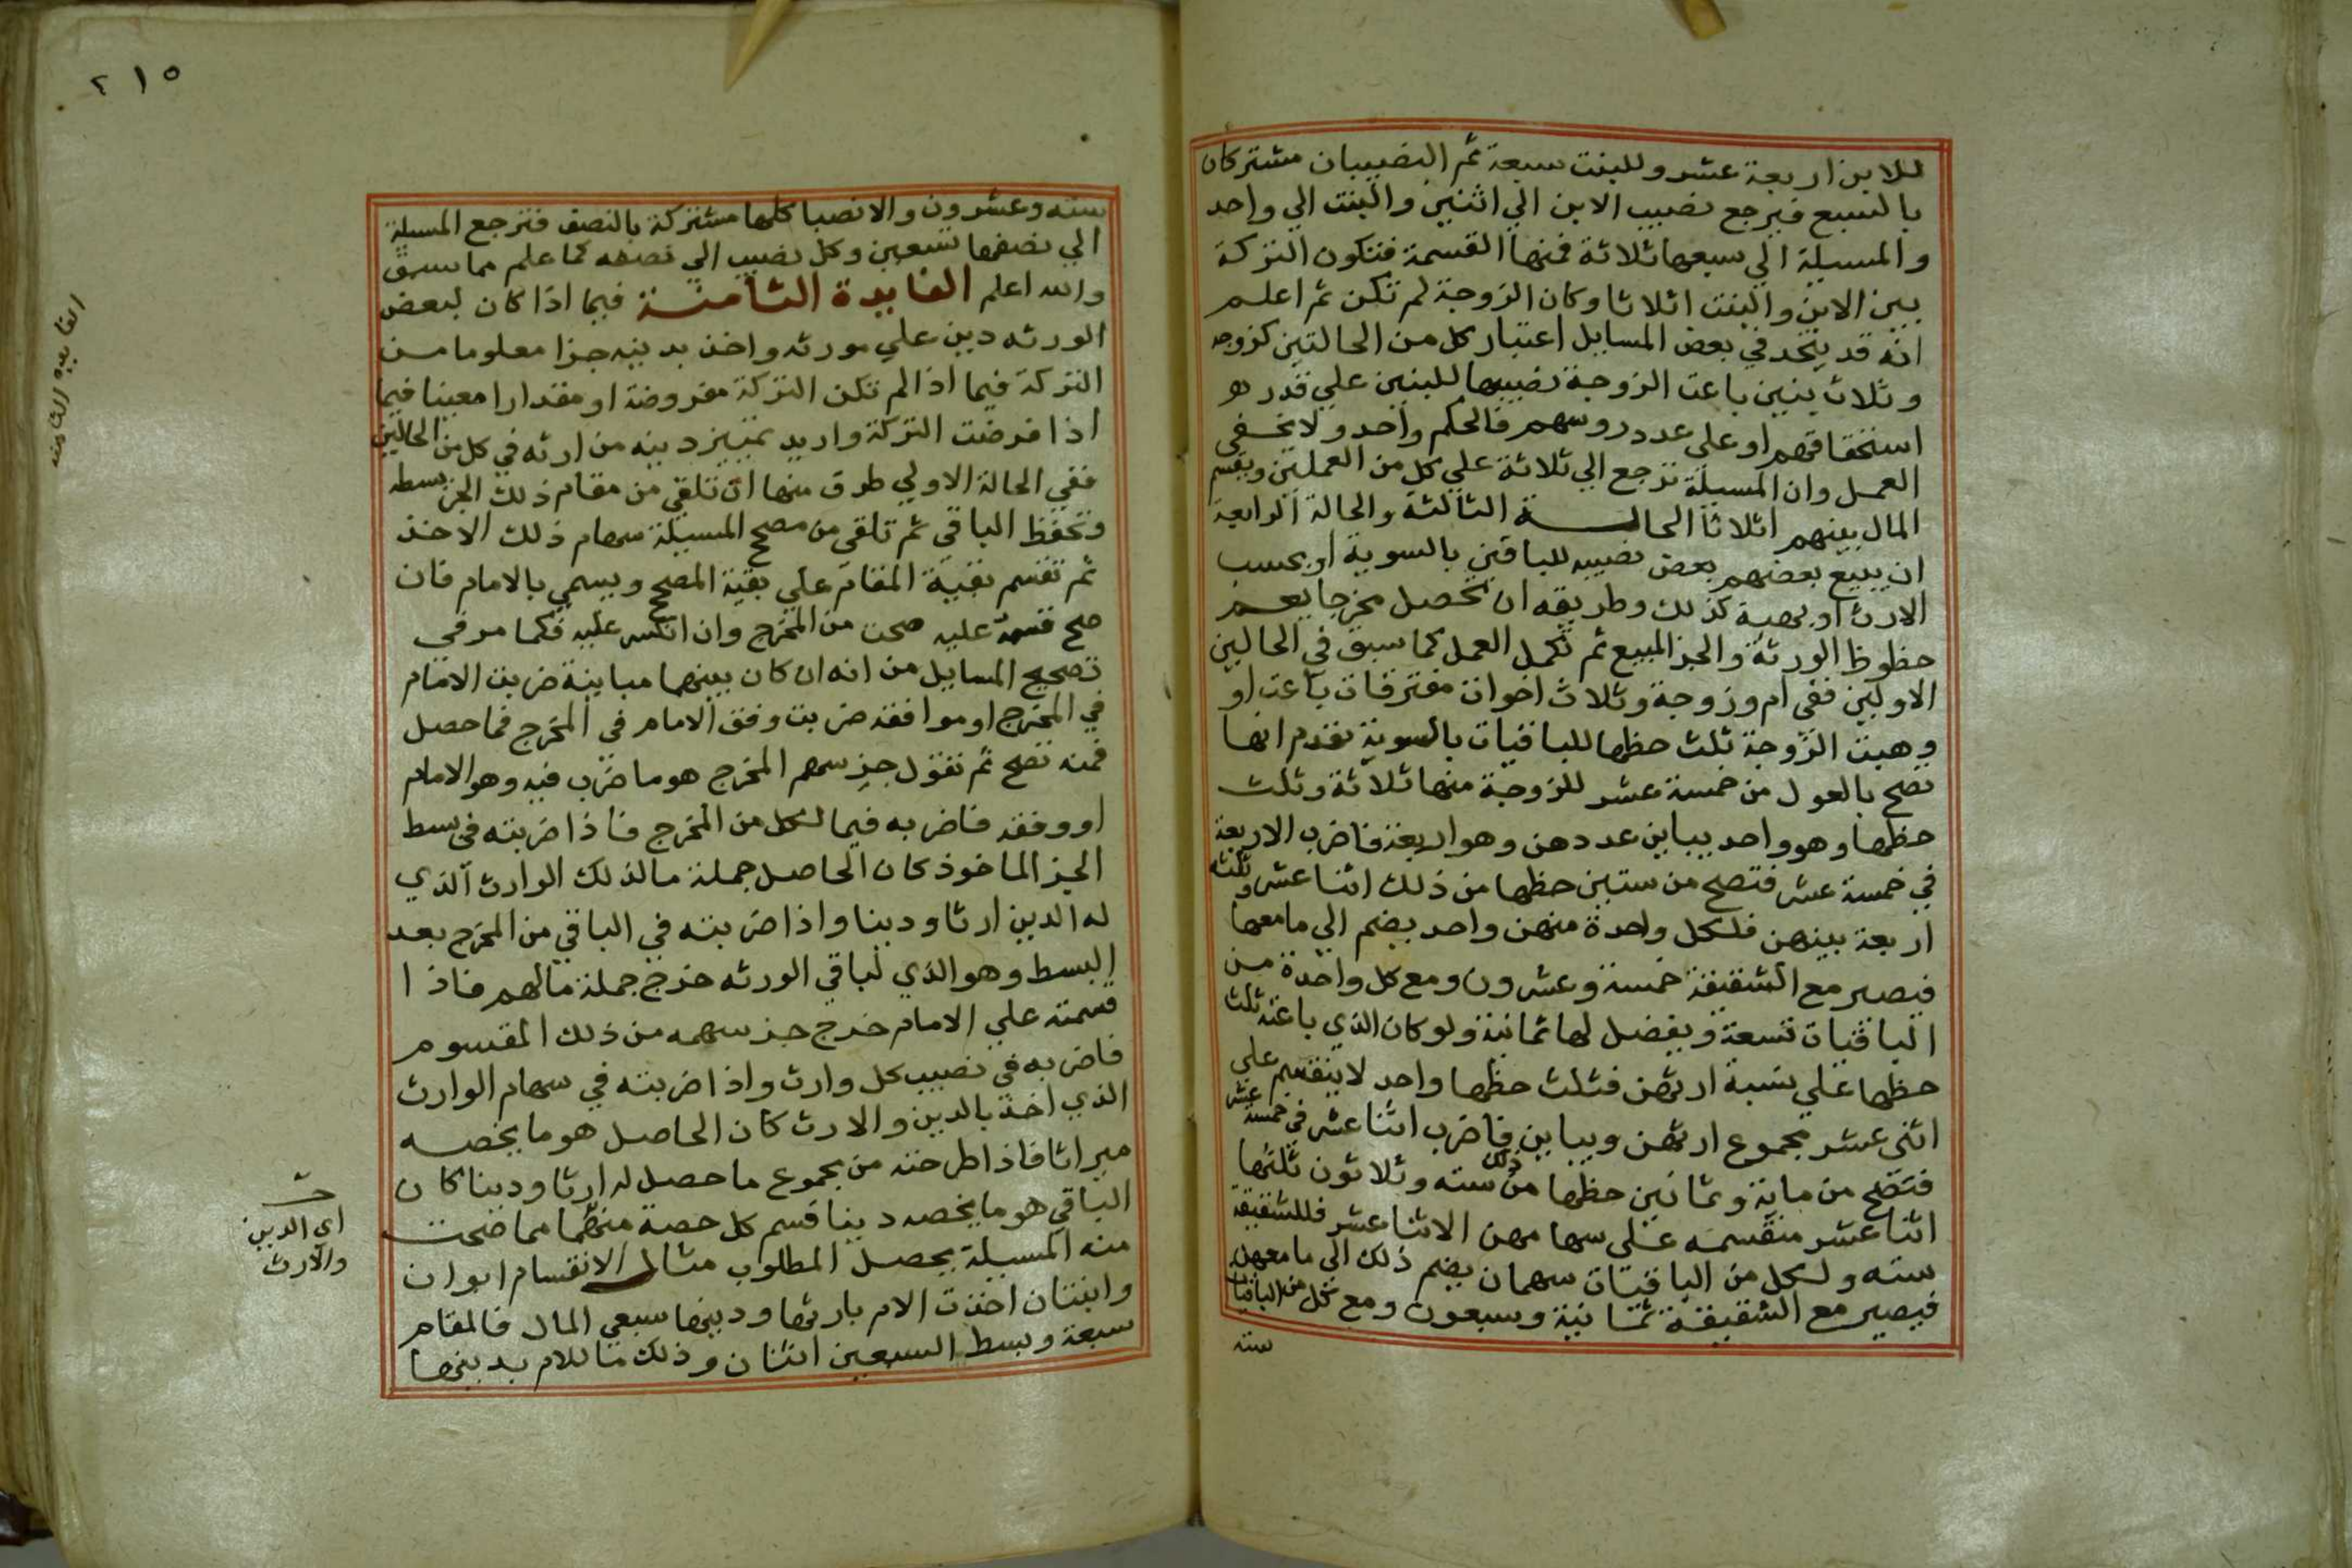 للابن اربعة عشر وللبنت سبعة ثم النصيبان مشتركان
بالسبع فيرجع نصيب الابن الي اثنين والبنت الي واحد
والمسيلة الي سبعها ثلاثة فمنها القسمة فتكون التركة
بين الابن والبنت اثلاثا وكان الزوجة لم تكن ثم اعلم
انه قد يتحد في بعض المسايل اعتبار كل من الحالتين كزوجه
وثلاث بنين باعت الزوجة نصيبها للبنين علي قدر
استحقاقهم او علي عدد روسهم فالحكم واحد ولا يخفي
العمل وان المسيلة ترجع الي ثلاثة علي كل من العملين ويقسم
المال بينهم اثلاثا الحالة الثالثة والحالة الرابعة
ان يبيع بعضهم بعض نصيبه للباقين بالسوية او بحسب
الارث او يهبه كذلك وطريقه ان تحصل مخرجا يعم
حظوظ الورثة والجز المبيع ثم تكمل العمل كما سبق في الحالين
الاولين ففي ام وزوجة وثلاث اخوات مفترقات باعت او
وهبت الزوجة ثلث حظها للباقيات بالسوية تقدم انها
تصح بالعول من خمسة عشر للزوجة منها ثلاثة وثلث
حظها وهو واحد يباين عددهن وهو اربعة فاضرب الاربعة
في خمسة عشر فتصح من ستين حظها من ذلك اثنا عشر وثلثه
اربعة بينهن فلكل واحدة منهن واحد يضم الي ما معها
فيصير مع الشقيقة خمسة وعشرون ومع كل واحدة من
الباقيات تسعة ويفضل لها ثمانية ولو كان الذي باعته ثلث
حظها علي نسبة ارثهن فثلث حظها واحد لا ينقسم علي
اثني عشر مجموع ارثهن ويباين فاضرب اثنا عشر في خمسة عشر
فتصح من ماية وثمانين حظها من ذلك سته وثلاثون ثلثها
اثنا عشر منقسمه علي سهامهن الاثنا عشر فللشقيقة
سته ولكل من الباقيات سهمان يضم ذلك الي ما معهن
فيصير مع الشقيقة ثمانية وسبعون ومع كل من الباقيات
سته
٢١٥
سته وعشرون والانصبا كلها مشتركة بالنصف فترجع المسيلة
الي نصفها تسعين وكل نصيب الي نصفه كما علم مما سبق
والله اعلم الفايدة الثامنة فيما اذا كان لبعض
الورثه دين علي مورثه واخذ بدينه جزا معلوما من
التركة فيما اذا لم تكن التركة مفروضة او مقدارا معينا فيما
اذا فرضت التركة واريد تمييز دينه من ارثه في كل من الحالين
ففي الحالة الاولي طرق منها ان تلقي من مقام ذلك الجز بسطه
وتحفظ الباقي ثم تلقي من مصحح المسيلة سهام ذلك الاخذ
ثم تقسم بقية المقام علي بقية المصحح ويسمي بالامام فان
صح قسمه عليه صحت من المخرج وان انكسر عليه فكما مر في
تصحيح المسايل من انه ان كان بينهما مباينة ضربت الامام
في المخرج او موافقه ضربت وفق الامام في المخرج فما حصل
فمنه تصح ثم تقول جز سهم المخرج هو ما ضرب فيه وهو الامام
او وفقه فاضربه فيما لكل من المخرج فاذا ضربته في بسط
الجز الماخوذ كان الحاصل جملة ما لذلك الوارث الذي
له الدين ارثا ودينا واذا ضربته في الباقي من المخرج بعد
البسط وهو الذي لباقي الورثه خرج جملة مالهم فاذا
قسمته علي الامام خرج جز سهمه من ذلك المقسوم
فاضربه في نصيب كل وارث واذا ضربته في سهام الوارث
الذي اخذ بالدين والارث كان الحاصل هو ما يخصه
ميراثا فاذا طرحته من مجموع ما حصل له ارثا ودينا كان
الباقي هو ما يخصه دينا قسم كل حصة منهما مما صحت
منه المسيلة يحصل المطلوب مثال الانقسام ابوان
وابنتان اخذت الام بارثها ودينها سبعي المال فالمقام
سبعة وبسط السبعين اثنان وذلك ما للام بدينها
الفايده الثامنه
اي الدين
والارث